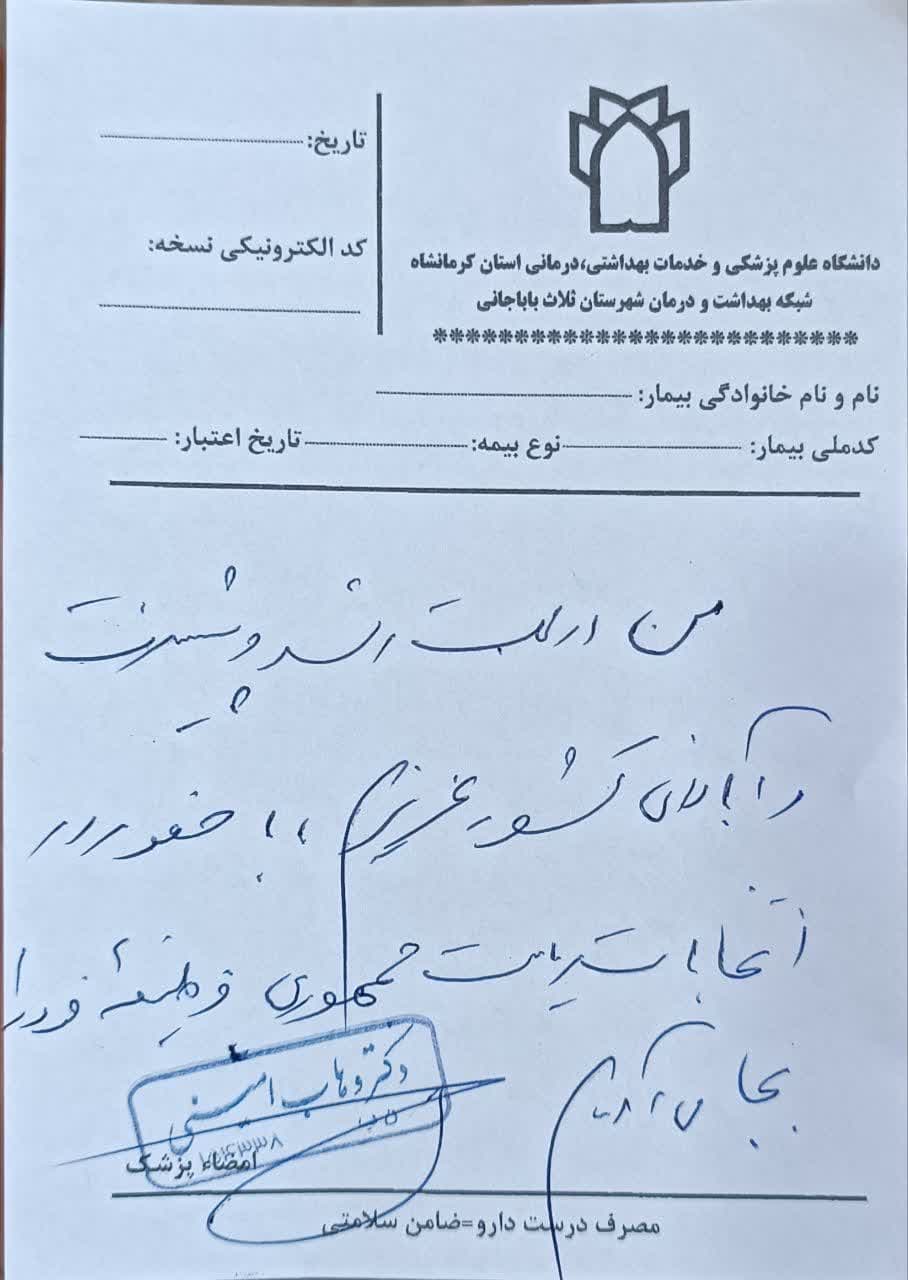 تاریخ:
کد الکترونیکی نسخه:
دانشگاه علوم پزشکی و خدمات بهداشتی،درمانی استان کرمانشاه
شبکه بهداشت و درمان شهرستان ثلاث باباجانی
**************************
نام و نام خانوادگی بیمار:
کدملی بیمار: نوع بیمه: تاریخ اعتبار:
من رشد و پیشرفت
و آبادانی کشور عزیزم ، با حضور در
انتخابات ریاست جمهوری وظیفه خود را
بجا می آورم
دکتر وهاب امینی
امضاء پزشک
مصرف درست دارو=ضامن سلامتی